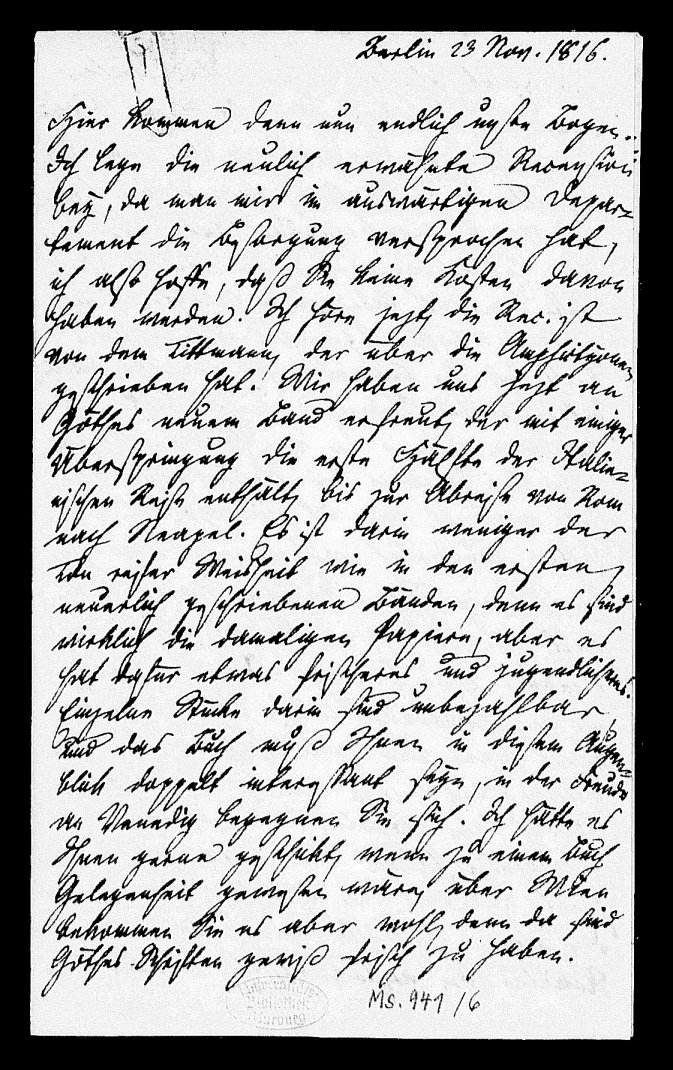 Berlin 23 Nov. 1816.
Hier kommen denn nun endlich erste Bogen..
Ich lege die neulich erwähnte Recension
bey, da man mir im auswärtigen Depar-
tement die Besorgung versprochen hat,
ich also hoffe, daß Sie keine Kosten davon
haben werden. Ich höre jezt, die Rec. ist
von dem Tittmann, der über die Amphictyonen
geschrieben hat. Wir haben uns jezt an
Göthes neuem Band erfreut, der mit einiger
Überspringung die erste Hälfte der Italie-
nischen Reise enthält, bis zur Abreise von Rom
nach Neapel. Es ist darin weniger der
Ton reifer Weisheit wie in den ersten,
neuerlich geschriebenen Bänden, denn es sind
wirklich die damaligen Papiere, aber es
hat dafür etwas frischeres und jugendlicheres.
Einzelne Stücke darin sind unbezahlbar,
und das Buch muß Ihnen in diesem Augen-
blick doppelt interessant seyn, in der Freude
an Venedig begegnen Sie sich. Ich hätte es
Ihnen gerne geschickt, wenn zu einem Buch
Gelegenheit gewesen wäre, über Wien
bekommen Sie es aber wohl, denn da sind
Göthes Schriften gewiß frisch zu haben.
Universitäts
Bibliothek
Marburg
Ms. 941/6